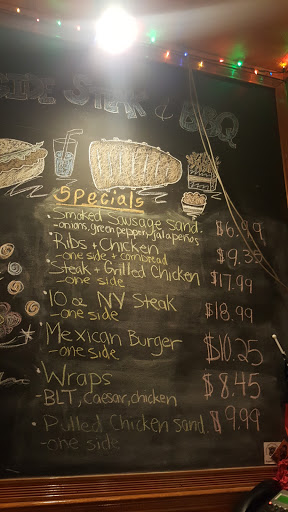 SIDE STEAK & BBQ
Specials
• Smoked Sausage Sand. $6.99
-onions, green pepper, jalapenos
• Ribs + Chicken $9.35
-one side + cornbread
Steak + Grilled Chicken $17.99
-one side
• 10 oz NY Steak $18.99
-one side
• Mexican Burger $10.25
-one side
• Wraps $8.45
-BLT, Caesar, chicken
• Pulled Chicken Sand. $9.99
-one side